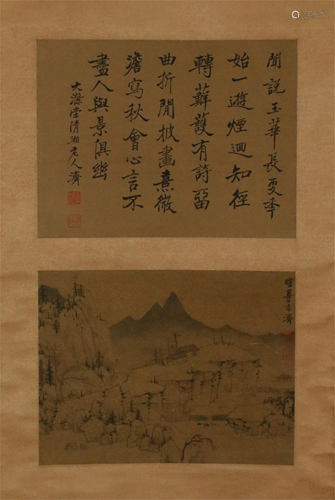 聞說玉華長夏季
始一遊煙迴知徑
轉蘚護有詩留
曲折閒披畫意微
澹寫秋會心言不
盡人與景俱幽
大滌堂清湘老人濟
清湘石濤